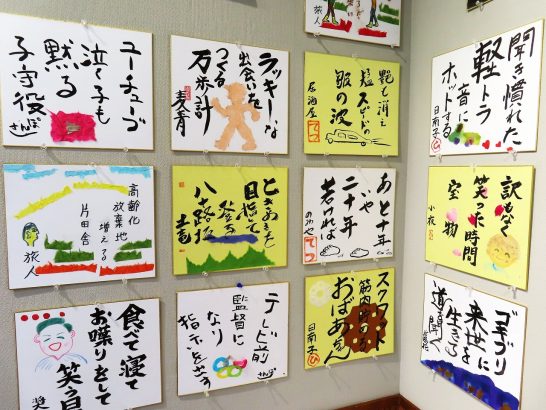 旅人
ユーチューブ
泣く子も
黙る
子守役
さんぽ
ラッキーな
出会いを
つくる
万歩計
麦青
艶も消え
スピードの
皺の波
居酒屋
聞き慣れた
軽トラ
音に
ホットする
日南子
高齢化
放棄地
増える
片田舎
旅人
ときめきを
目指して
登る
八十路坂
土竜
あと十年
いや
二十年
若ければ
訳もなく
笑った時間
宝物
小牧
食べて寝て
お喋りをして
笑う日
テレビ前
監督に
なり
指示を出す
さんぽ
スクワット
筋肉
おばあさん
日南子
ゴキブリに
来世を
生きる
道を聞く